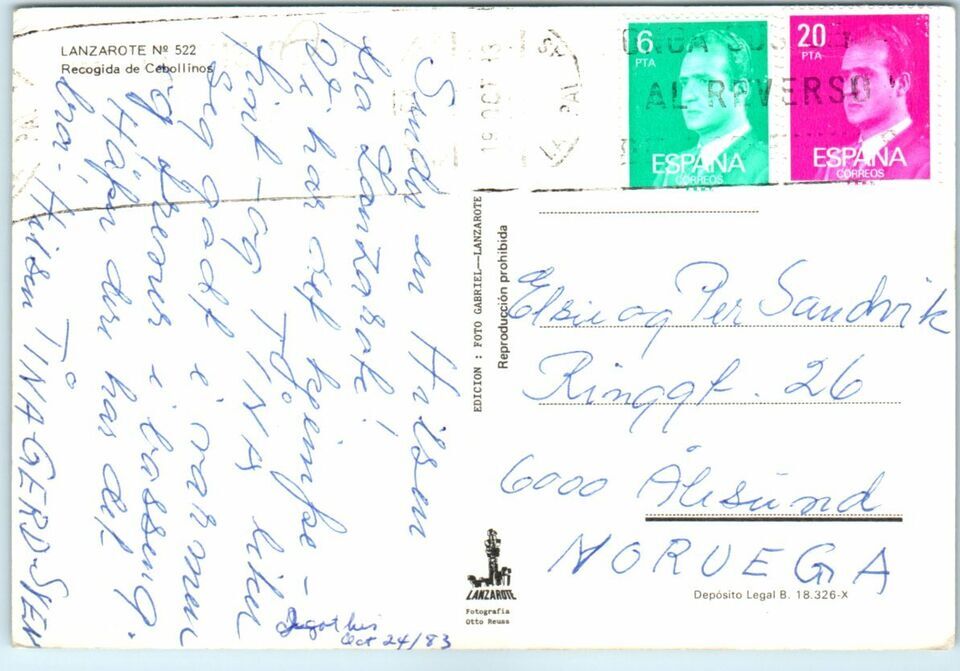 LANZAROTE Nº 522
Recogida de Cebollinos
Sender en hilsen
fra Lanzarote!
Vi har det kjempe-
fint - og TINA liker
seg godt i varmen
og i basseng.
Håper dere har det
bra. Hilsen TINA GERD-
got this
Oct 24/83
EDICION : FOTO GABRIEL--LANZAROTE
Reproducción prohibida
LANZAROTE
Fotografía
Otto Reuss
19 OCT
AL REVERSO
6
PTA
ESPAÑA
CORREOS
20
PTA
ESPAÑA
CORREOS
og Per Sandvik
Ringgt. 26
6000 Ålesund
NORUEGA
Depósito Legal B. 18.326-X